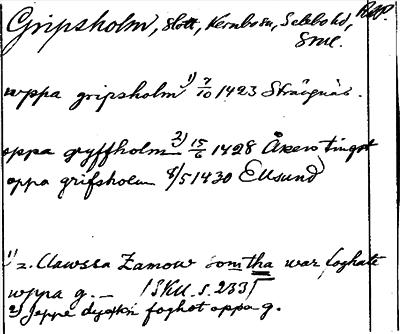 Gripsholm, slott, Kernbo sn, Selebo hd, Rep.
Sml.
uppa gripsholm 1) 7/10 1423 Strängnäs.
oppa gryffholm 2) 15/6 1428 Åkers tingst
oppa grifsholm 8/5 1430 Ellsund
1) z. Clawssa Zamow som tha war foghate
uppa g. — (SKU. s. 233)
2) Jeppe foghot oppa g.